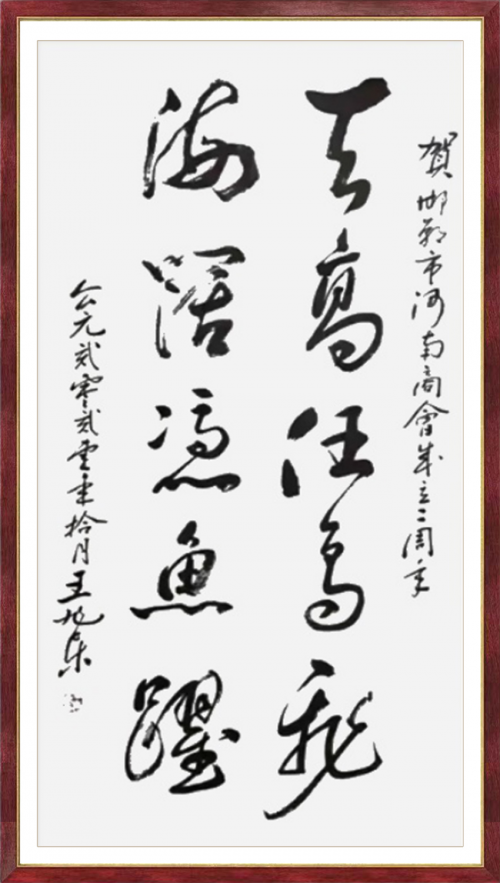 賀邯鄲市河南商會成立二周年
天高任鳥飛
海闊憑魚躍
公元貳零貳零年拾月王旭东